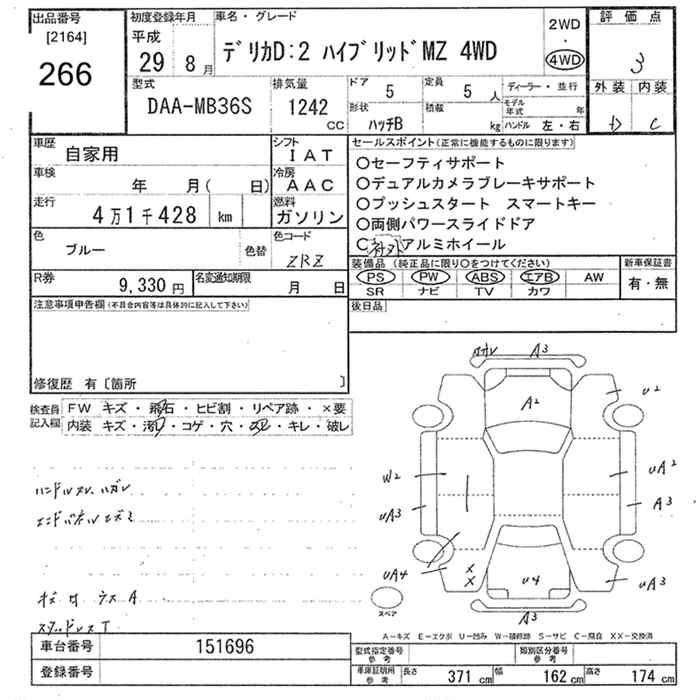 出品番号
[2164]
266
初度登録年月
平成
29 8月
車名・グレード
デリカD:2 ハイブリッドMZ 4WD
2WD
・
4WD
評価点
3
外装 内装
D C
型式
DAA-MB36S
排気量
1242
CC
ドア
5
定員
5 人
形状
ハッチB
積載
kg
ディーラー・並行
モデル年式 年
ハンドル 左・右
車歴
自家用
シフト
IAT
車検
年 月( 日)
冷房
AAC
走行
4万1千428 km
燃料
ガソリン
色
ブルー
色替
色コード
ZRZ
R券
9,330 円
名変通知期限
月 日
セールスポイント(正常に機能するものに限ります)
○セーフティサポート
○デュアルカメラブレーキサポート
○プッシュスタート スマートキー
○両側パワースライドドア
○社外アルミホイール
装備品(純正品に限り○をつけてください)
PS PW ABS エアB AW
SR ナビ TV カワ
新車保証書
有・無
後日品
注意事項申告欄(不具合内容等は具体的に記入して下さい)
修復歴 有〔箇所 〕
検査員
記入欄
FW キズ・飛石・ヒビ割・リペア跡・×要
内装 キズ・汚れ・コゲ・穴・スレ・キレ・破レ
ハンドルスレ、ハガレ
エンドパネルキズミ
スタッドレスT
A3
A2
U2
W2
UA2
UA3
A3
UA4
×
×
U4
UA3
A3
スペア
A-キズ E-エクボ U-凹み W-補修跡 S-サビ C-腐食 XX-交換済
車台番号
151696
登録番号
型式指定番号
参考
類別区分番号
参考
車庫証明用
参考
長さ 371 cm
幅 162 cm
高さ 174 cm